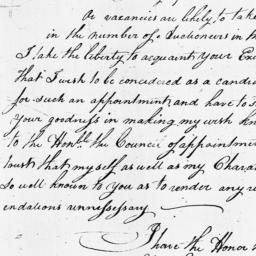 As vacancies are likely to take
in the number of Auctioneers in th
I take the liberty to acquaint Your Exc
that I wish to be concidered as a candid
for such an appointment, and have to s
Your goodness in making my wish kn
to the Honble. the Council of appointmen
trust that myself as well as my Charac
so well known to you as to render any re
endations unnessessary
I have the Honor